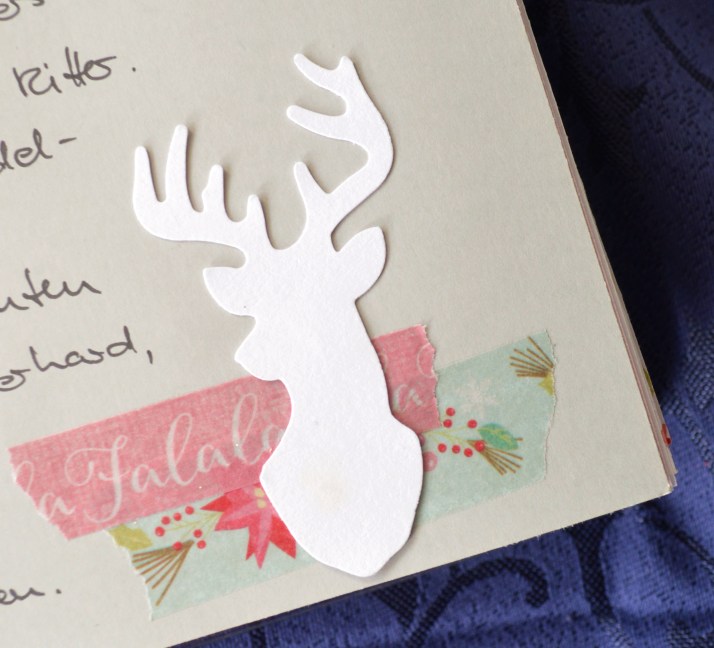 Ritter.
del-
nten
erhard,
a Falala
en.